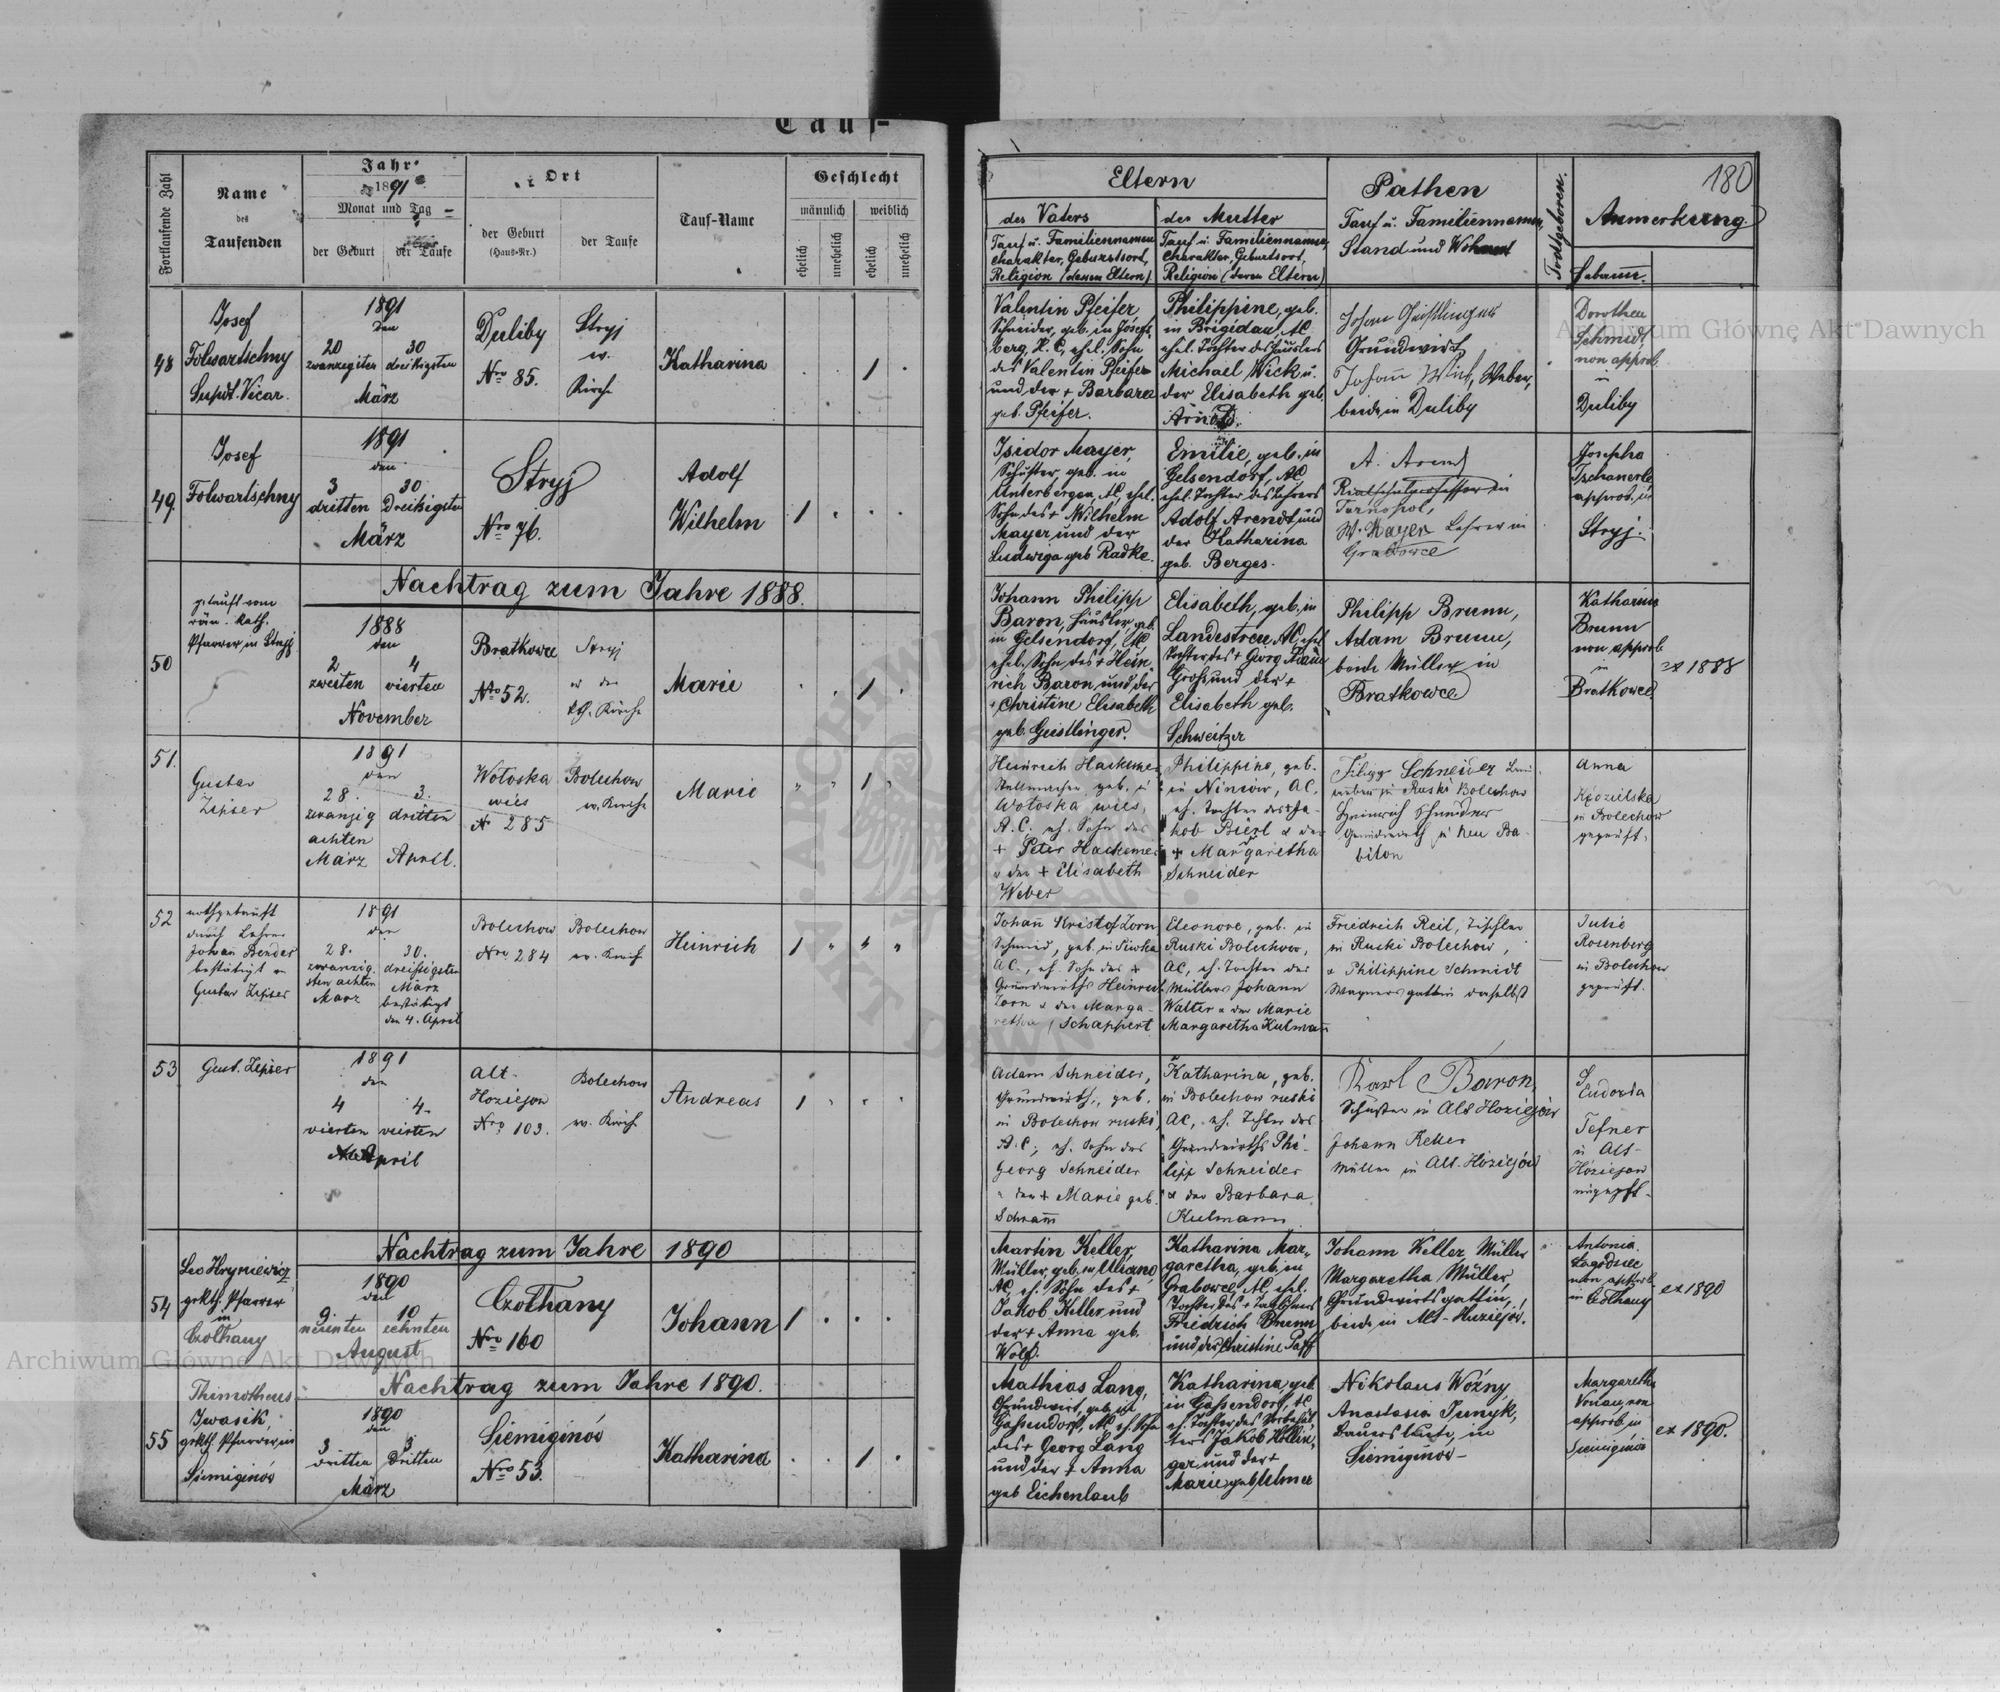 Tauf-
Fortlaufende Zahl
Name
des
Taufenden
Jahr
1891
Monat und Tag
der Geburt
der Taufe
Ort
der Geburt
(Haus-Nr.)
der Taufe
Tauf-Name
Geschlecht
männlich
weiblich
ehelich
unehelich
ehelich
unehelich
Eltern
des Vaters
Tauf u. Familiennamen
Charakter, Geburtsort,
Religion (dessen Eltern)
der Mutter
Tauf u. Familiennamen,
Charakter, Geburtsort,
Religion (deren Eltern)
Pathen
Tauf u. Familiennamen,
Stand und Wohnort
Todtgeboren.
180
Anmerkung.
Hebamm.
48
Josef
Folwartschny
Supdt. Vicar.
1891
den
20 30
zwanzigsten dreißigsten
März
Duliby
Nro 85.
Stryj
ev.
Kirche
Katharina
1
Valentin Pfeifer
Schneider, geb. in Josefs
berg, H. C., ehel. Sohn
des Valentin Pfeifer
und der + Barbara
geb. Pfeifer.
Philippine, geb.
in Brigidau, AC.
ehel. Tochter des Häuslers
Michael Wick u.
der Elisabeth geb.
Arnold.
Johan Geistlinger
Grundwirt
Johann Wick, Weber,
beide in Duliby
Dorothea
Schmidt
non approb.
in
Duliby
49
Josef
Folwartschny
1891
den
3 30
dritten Dreißigsten
März
Stryj
Nro 76.
Adolf
Wilhelm
1
Isidor Mayer,
Schuster, geb. in
Unterbergen, AC, ehel.
Sohn des + Wilhelm
Mayer und der
Ludwiga geb Radke.
Emilie, geb. in
Gelsendorf, AC,
ehel. Tochter des Lehrers
Adolf Arendt und
der Katharina
geb. Berges.
A. Arendt
Realschulprofessor in
Tarnopol,
W. Mayer Lehrer in
Grabowce
Josepha
Tschanerle
approb. in
Stryj.
Nachtrag zum Jahre 1888.
50
getauft vom
röm. kath.
Pfarrer, in Stryj
1888
den
2 4
zweiten vierten
November
Bratkowce
Nro 52.
Stryj
in der
kth. Kirche
Marie
1
Johann Philipp
Baron, Häusler, geb.
in Gelsendorf, AC,
ehel. Sohn des + Hein
rich Baron, und der
+ Christine Elisabeth
geb. Geistlinger.
Elisabeth, geb. in
Landestreu, AC, ehel
Tochter des + Georg Adam
Groß, und der +
Elisabeth geb.
Schweitzer
Philipp Brunn,
Adam Brunn,
beide Müller in
Bratkowce
Katharina
Brunn
non approb
in
Bratkowce
ex 1888
51.
Gustav
Zipser
1891
den
28. 3.
zwanzig dritten
achten
März April.
Wołoska
wieś
Nr 285
Bolechow
ev. Kirche
Marie
1
Heinrich Hackemer
Stellmacher geb. in
Wołoska wieś,
A. C. eh. Sohn des
+ Peter Hackemer
u der + Elisabeth
Weber
Philippine, geb.
in Niniów, AC.
eh. Tochter des + Ja-
kob Bierl u der
+ Margaretha
Schneider
Filipp Schneider
in Ruski Bolechow
Heinrich Schneider
Grundwirth in Neu Ba-
bilon
Anna
Kozielska
in Bolechow
geprüft.
52
nothgetauft
durch Lehrer
Johan Bender
bestätigt v.
Gustav Zipser
1891
den
28. 30.
zwanzig- dreißigsten
sten achten März
März bestätigt
den 4. April
Bolechow
Nro 284
Bolechow
ev. Kirche
Heinrich
1
Johann Kristof Zorn
Schmied, geb. in Siwka
AC., eh. Sohn des +
Grundwirths Heinrich
Zorn u der Marga-
retha Schappert
Eleonore, geb. in
Ruski Bolechow,
AC, eh. Tochter des
Müllers Johann
Walter u der Marie
Margaretha Kulmann
Friedrich Reil, Tischler
in Ruski Bolechow,
u Philippine Schmidt
Wagnersgattin daselbst
Julie
Rosenberg
in Bolechow
geprüft.
53
Gust. Zipser
1891
den
4 4.
vierten vierten
April
Alt-
Hoziejow
Nro 103.
Bolechow
ev. Kirche
Andreas
1
Adam Schneider,
Grundwirth, geb.
in Bolechow ruski,
A. C., eh. Sohn des
Georg Schneider
u der + Marie geb.
Schramm
Katharina, geb.
in Bolechow ruski
AC, eh. Tochter des
Grundwirths Phi-
lipp Schneider
u der Barbara
Kulmann
Karl Baron,
Schuster in Alt Hoziejów
Johann Keller
Müller in Alt-Hoziejów
Eudoxia
Tefner
in Alt-
Hoziejow
ungeprft.
Nachtrag zum Jahre 1890
54
Leo Hryniewicz
grkth. Pfarrer
in
Czolhany
1890
den
9. 10
neunten zehnten
August
Czolhany
Nro 160
Johann
1
Martin Keller,
Müller, geb. in Ugano,
AC, eh. Sohn des +
Jakob Keller und
der + Anna geb.
Wolf.
Katharina Mar-
garetha, geb. in
Grabowce, AC, ehel.
Tochter des + Taglöhners
Friedrich Brunn
und der Christine Paff
Johann Keller Müller
Margaretha Müller,
Grundwirtsgattin,
beide in Alt-Huziejów.
Antonia
non approb.
in Czolhany
ex 1890
Nachtrag zum Jahre 1890.
55
Thimotheus
Iwasik,
grkth. Pfarrer in
Siemiginów
1890
den
3 3
dritten dritten
März
Siemiginów
Nro 53.
Katharina
1
Mathias Lang,
Grundwirt, geb. in
Gaßendorf, AC, eh. Sohn
des + Georg Lang
und der + Anna
geb Eichenlaub
Katharina, geb.
in Gaßendorf, AC
eh. Tochter des Vorbehäl-
ters Jakob Hollin-
ger und der +
Marie geb. Ulmer
Nikolaus Woźny
Anastasia Junyk,
Bauersleute, in
Siemiginow-
Margaretha
Vonau, non
approb. in
Siemiginów
ex 1890.
Archiwum Główne Akt Dawnych
Archiwum Główne Akt Dawnych